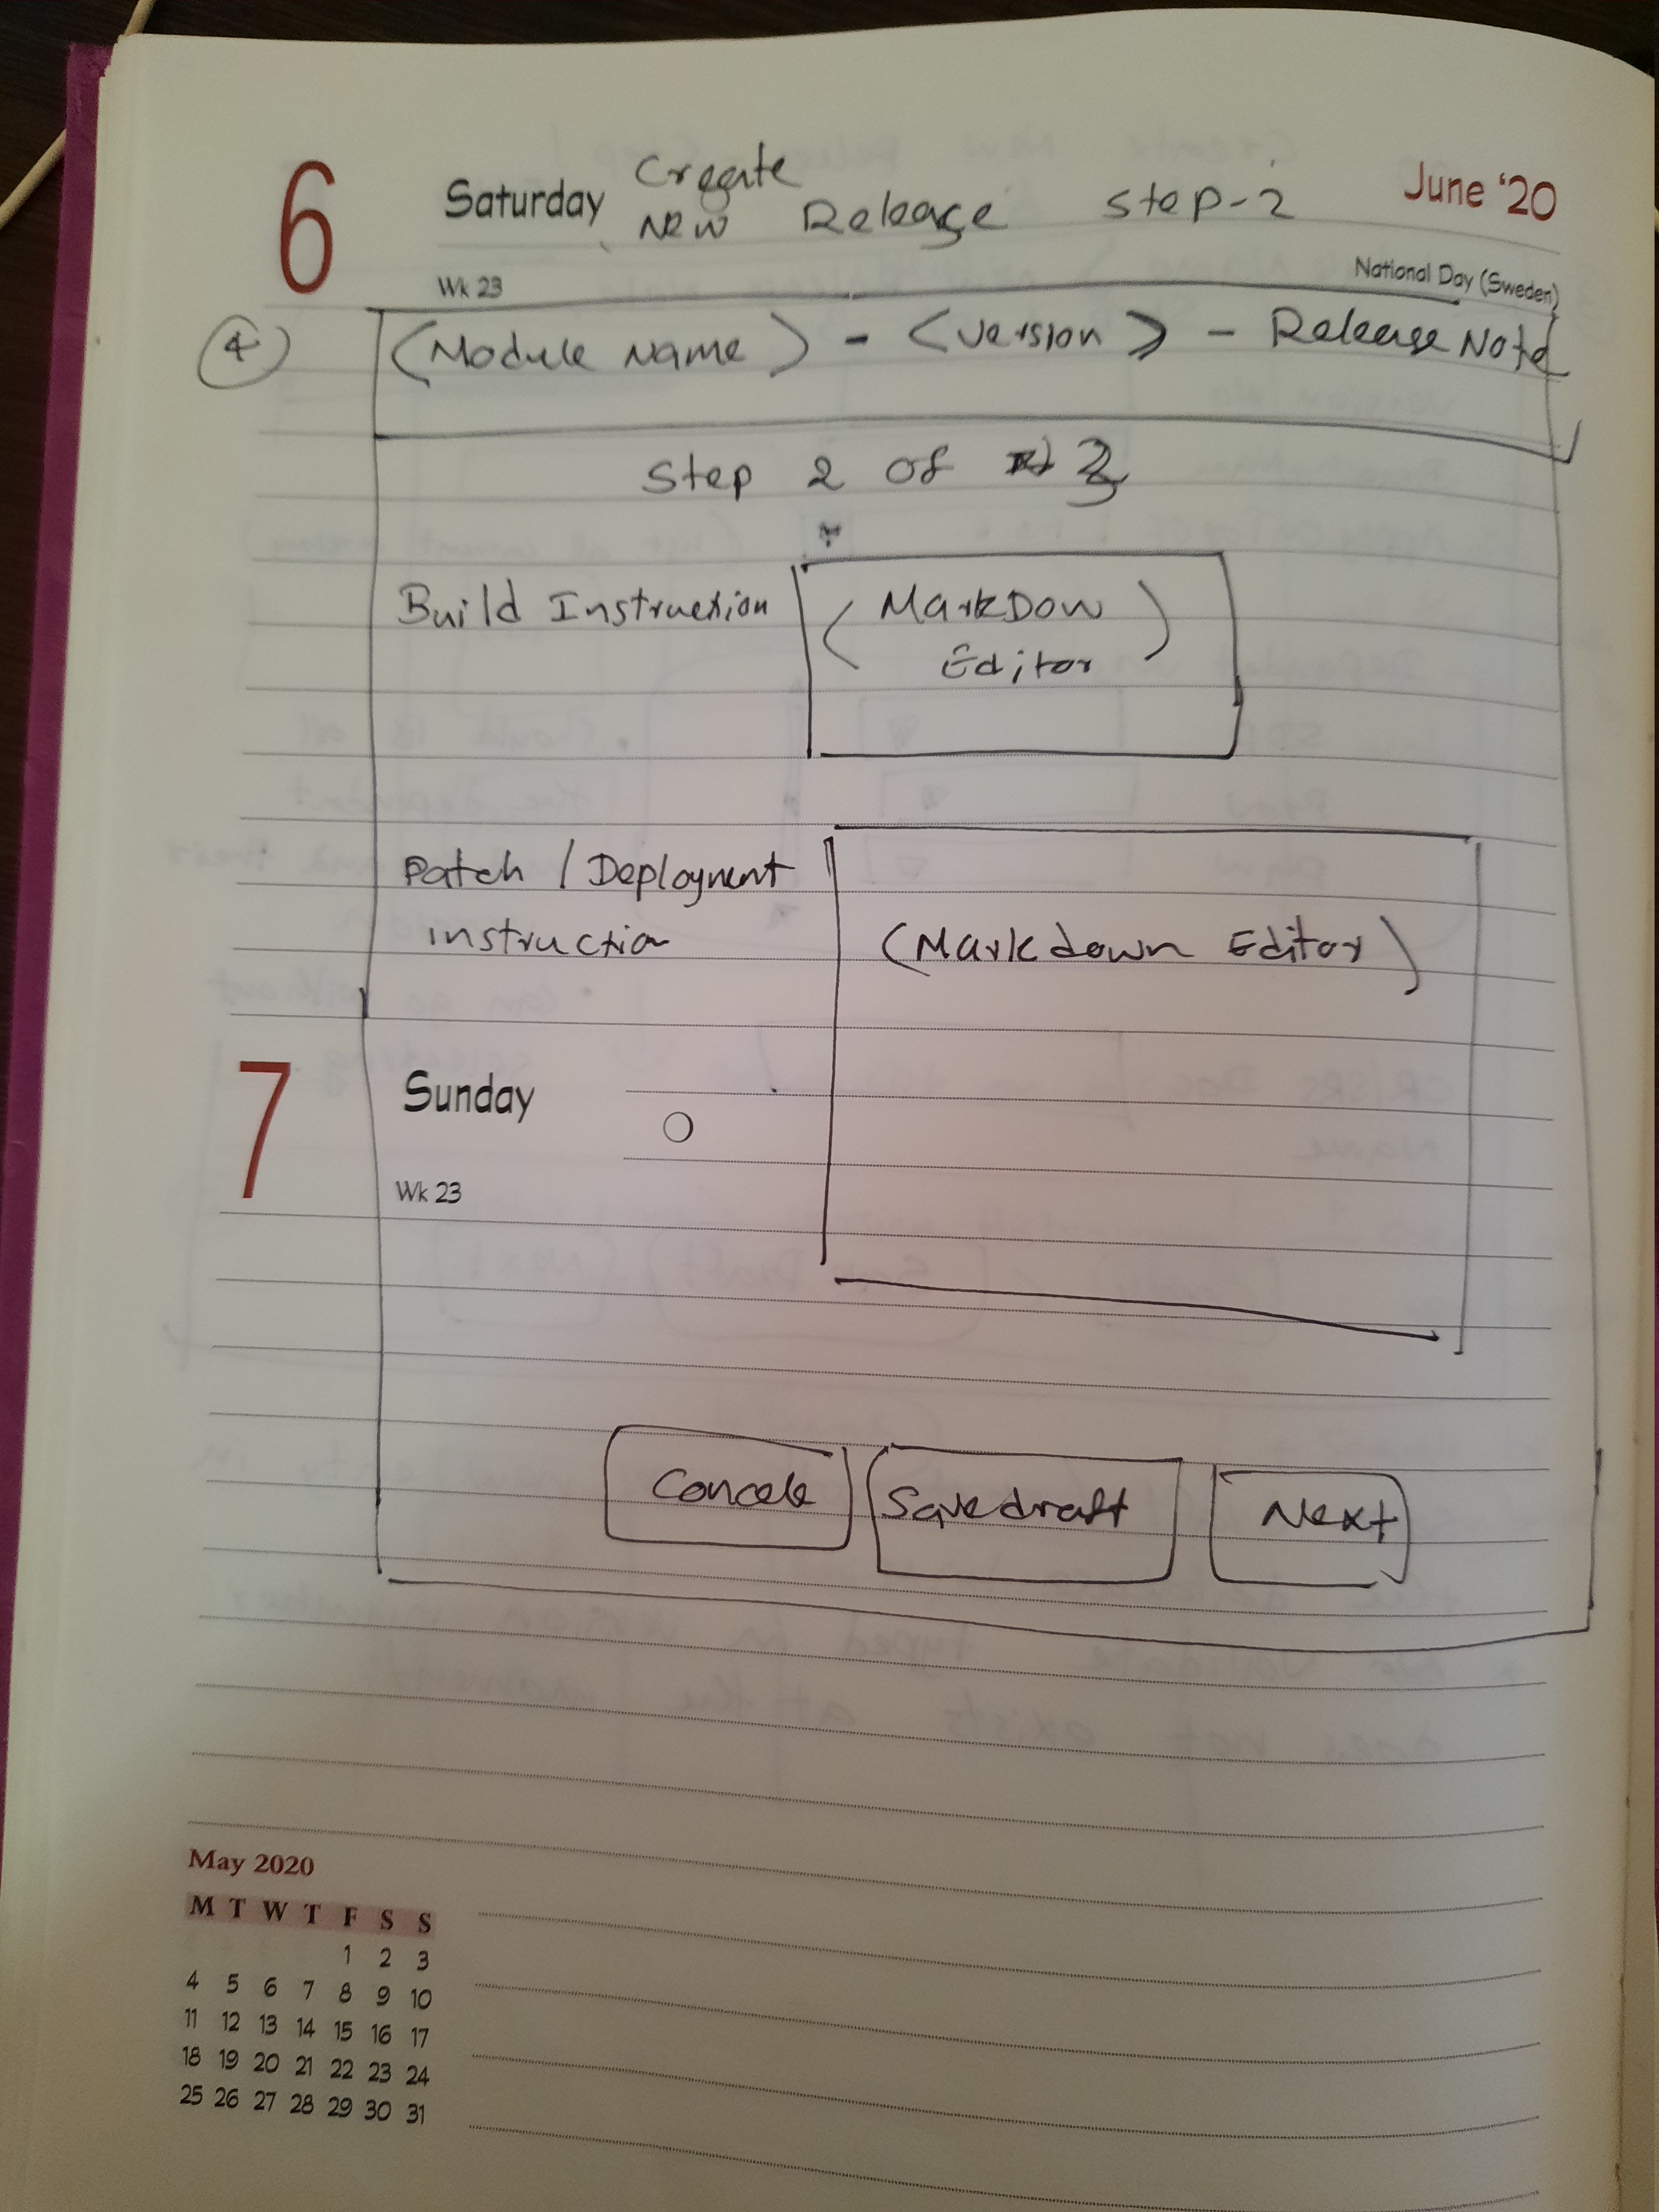 6
Saturday
Create
New Release Step-2
June '20
Wk 23
National Day (Sweden)
4
(Module Name) - <Version> - Release Note
Step 2 of 3
Build Instruction
(MarkDow
Editor)
Patch / Deployment
instruction
(Markdown Editor)
7
Sunday
Wk 23
Cancele
Save draft
Next
May 2020
M T W T F S S
1 2 3
4 5 6 7 8 9 10
11 12 13 14 15 16 17
18 19 20 21 22 23 24
25 26 27 28 29 30 31